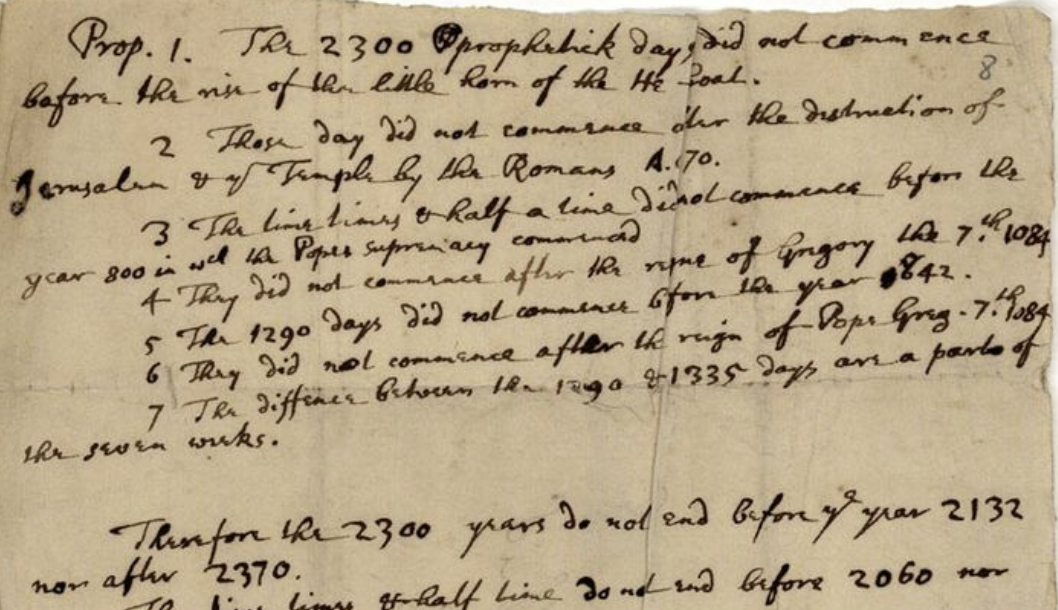 Prop. 1. The 2300 prophetick days did not commence
8
before the rise of the little horn of the He Goat.
2 Those day did not commence after the destruction of
Jerusalem & ye Temple by the Romans A. 70.
3 The time times & half a time did not commence before the
year 800 in wch the Popes supremacy commenced
4 They did not commence after the reigne of Gregory the 7.th 1084
5 The 1290 days did not commence before the year 842.
6 They did not commence after the reign of Pope Greg. 7.th 1084
7 The diffence between the 1290 & 1335 days are a parts of
the seven weeks.
Therefore the 2300 years do not end before ye year 2132
nor after 2370.
The time times & half time do not end before 2060 nor